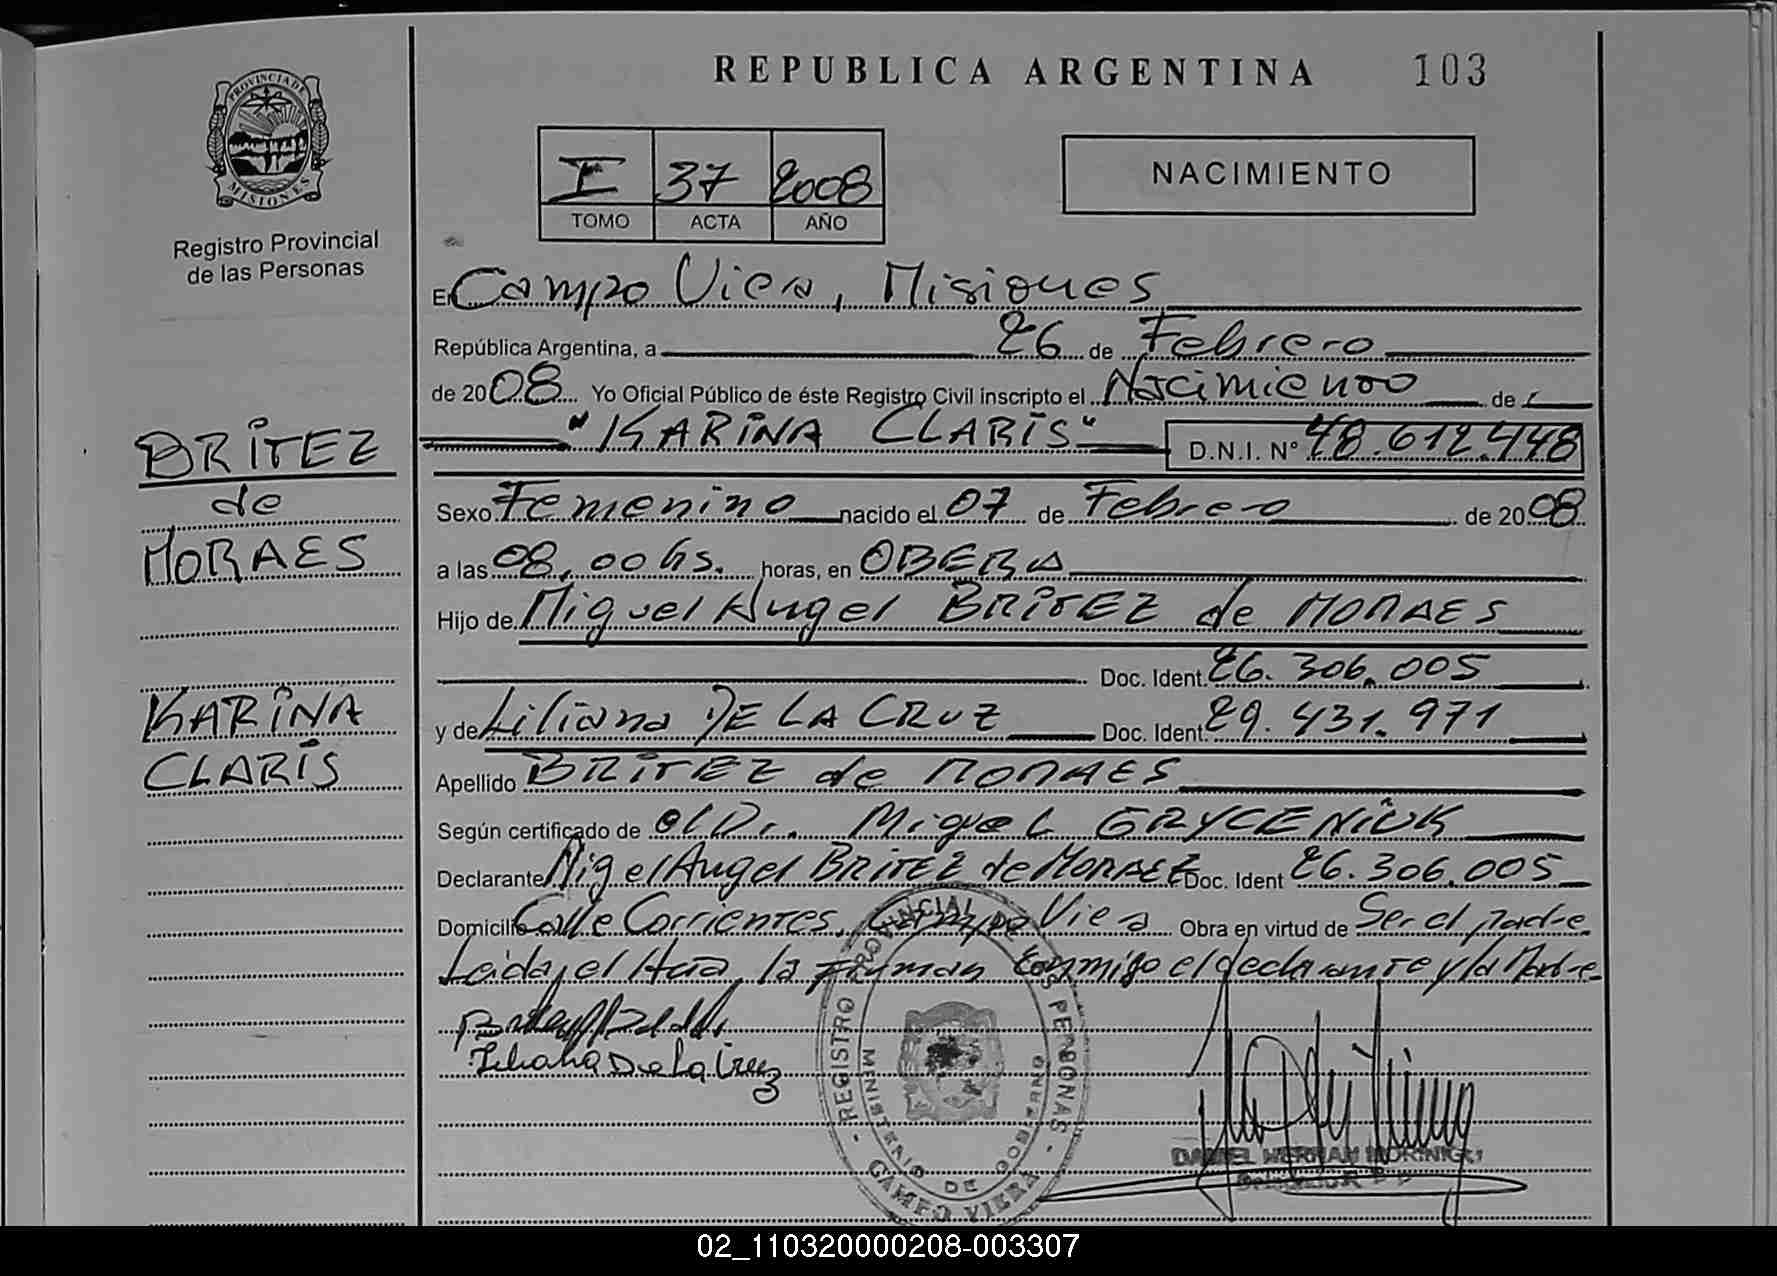 REPUBLICA ARGENTINA 103
PROVINCIA DE
MISIONES
Registro Provincial
de las Personas
I 37 2008
TOMO ACTA AÑO
NACIMIENTO
En Campo Viera, Misiones
República Argentina, a 26 de Febrero
de 2008 Yo Oficial Público de éste Registro Civil inscripto el Nacimiento de
"KARINA CLARIS" D.N.I. N° 48.612.448
BRITEZ
de
MORAES
KARINA
CLARIS
Sexo Femenino nacido el 07 de Febrero de 2008
a las 08,00 hs. horas, en OBERA
Hijo de Miguel Angel BRITEZ de MORAES
Doc. Ident. 26.306.005
y de Liliana DE LA CRUZ Doc. Ident. 29.431.971
Apellido BRITEZ de MORAES
Según certificado de el Dr. Miguel GRYCENIUK
Declarante Migel Angel BRITEZ de MORAEZ Doc. Ident 26.306.005
Domicilio Calle Corrientes, Campo Viera Obra en virtud de Ser el padre
Leida, el Acta, la firman conmigo el declarante y la Madre
Liliana De La Cruz
REGISTRO PROVINCIAL DE LAS PERSONAS
MINISTERIO DE GOBIERNO
CAMPO VIERA
DANIEL HERNAN MORINIGO
02_110320000208-003307